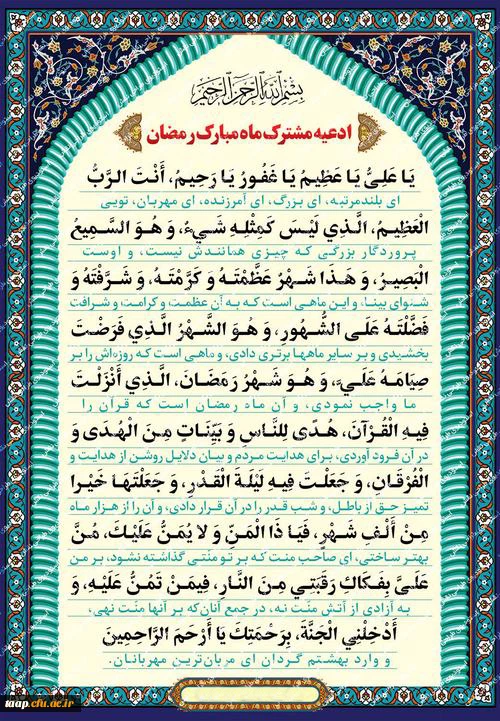 بسم الله الرحمن الرحیم
ادعیه مشترک ماه مبارک رمضان
یَا عَلِیُّ یَا عَظِیمُ یَا غَفُورُ یَا رَحِیمُ، أَنْتَ الرَّبُّ
ای بلندمرتبه، ای بزرگ، ای آمرزنده، ای مهربان، تویی
الْعَظِیمُ، الَّذِي لَیْسَ کَمِثْلِهِ شَيْءٌ، وَ هُوَ السَّمِیعُ
پروردگار بزرگی که چیزی همانندش نیست، و اوست
الْبَصِیرُ، وَ هَذَا شَهْرٌ عَظَّمْتَهُ وَ کَرَّمْتَهُ، وَ شَرَّفْتَهُ وَ
شنوای بینا، و این ماهی است که به آن عظمت و کرامت و شرافت
فَضَّلْتَهُ عَلَی الشُّهُورِ، وَ هُوَ الشَّهْرُ الَّذِي فَرَضْتَ
بخشیدی و بر سایر ماهها برتری دادی، و ماهی است که روزه‌اش را بر
صِیَامَهُ عَلَيَّ، وَ هُوَ شَهْرُ رَمَضَانَ، الَّذِي أَنْزَلْتَ
ما واجب نمودی، و آن ماه رمضان است که قرآن را
فِیهِ الْقُرْآنَ، هُدًی لِلنَّاسِ وَ بَیِّنَاتٍ مِنَ الْهُدَی وَ
در آن فرود آوردی، برای هدایت مردم و بیان دلایل روشن از هدایت و
الْفُرْقَانِ، وَ جَعَلْتَ فِیهِ لَیْلَةَ الْقَدْرِ، وَ جَعَلْتَهَا خَیْرا
تمیز حق از باطل، و شب قدر را در آن قرار دادی، و آن را از هزار ماه
مِنْ أَلْفِ شَهْرٍ، فَیَا ذَا الْمَنِّ وَ لا یُمَنُّ عَلَیْكَ، مُنَّ
بهتر ساختی، ای صاحب منت که بر تو منّتی گذاشته نشود، بر من
عَلَيَّ بِفَکَاكِ رَقَبَتِي مِنَ النَّارِ، فِیمَنْ تَمُنُّ عَلَیْهِ، وَ
به آزادی از آتش منّت نه، در جمع آنان که بر آنها منّت نهی،
أَدْخِلْنِي الْجَنَّةَ، بِرَحْمَتِكَ یَا أَرْحَمَ الرَّاحِمِینَ
و وارد بهشتم گردان ای مهربان‌ترین مهربانان.
taap.cfu.ac.ir